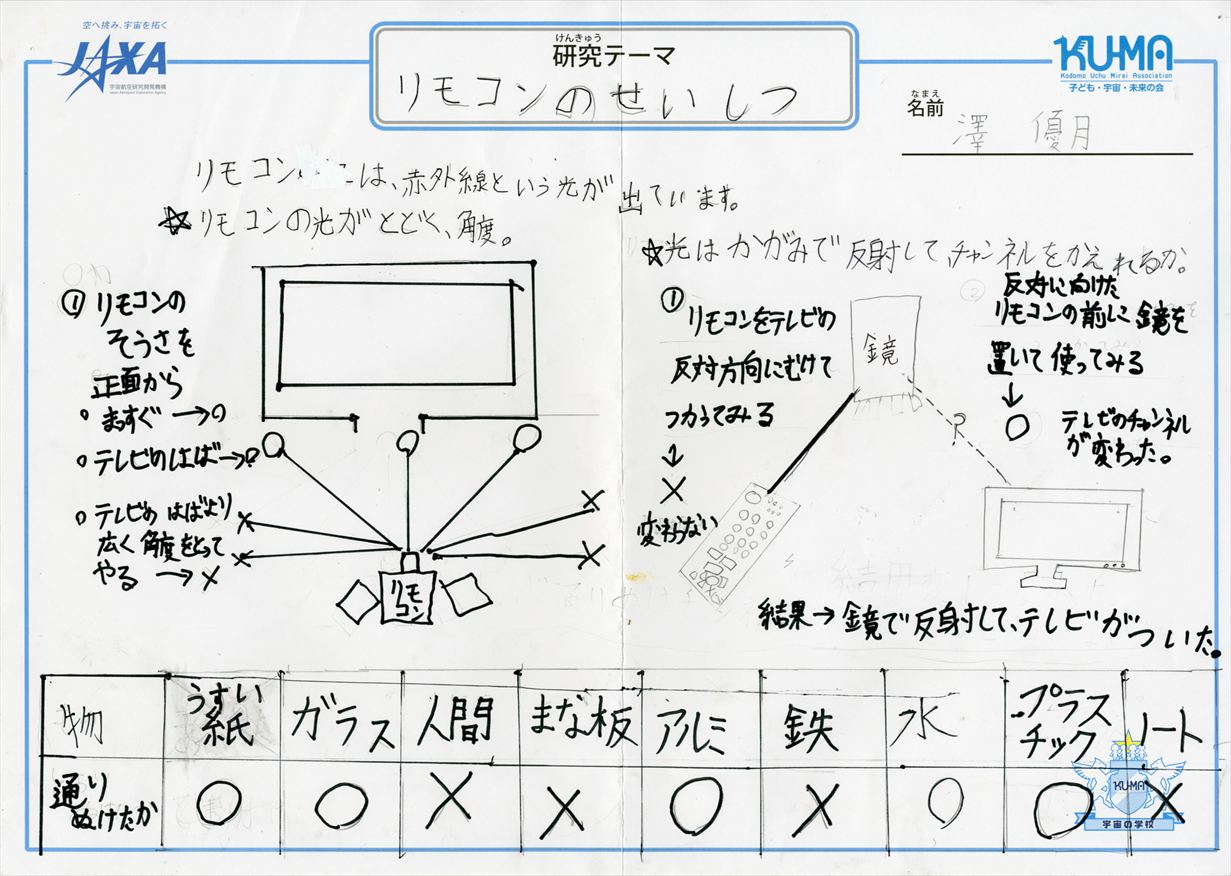 空へ挑み、宇宙を拓く
JAXA
宇宙航空研究開発機構
Japan Aerospace Exploration Agency
けんきゅう
研究テーマ
リモコンのせいしつ
KU-MA
Kodomo Uchu Mirai Association
子ども・宇宙・未来の会
なまえ
名前
澤 優月
リモコン には、赤外線という光が出ています。
☆リモコンの光がとどく、角度。
① リモコンの
そうさを
正面から
○ まっすぐ→○
○ テレビのはば→○
○ テレビの はばより
広く 角度をとって
やる →×
リモコン
☆光はかがみで反射して、チャンネルをかえれるか。
① リモコンをテレビの
反対方向にむけて
つかってみる
↓
×
変わらない
鏡
②
反対に向けた
リモコンの前に鏡を
置いて使ってみる
↓
○ テレビのチャンネル
が変わった。
結果→鏡で反射して、テレビがついた。
物 うすい紙 ガラス 人間 まな板 アルミ 鉄 水 プラスチック ノート
通りぬけたか ○ ○ × × ○ × ○ ○ ×
KU-MA
宇宙の学校